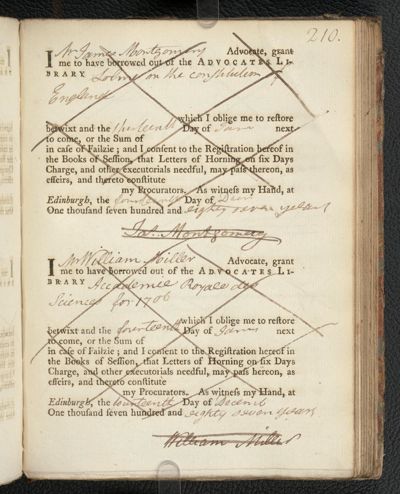 210.
I Mr James Montgomery Advocate, grant
me to have borrowed out of the ADVOCATES LI-
BRARY Lolme on the constitution of
England
which I oblige me to restore
betwixt and the thirteenth Day of Jan next
to come, or the Sum of
in case of Failzie; and I consent to the Registration hereof in
the Books of Session, that Letters of Horning on six Days
Charge, and other executorials needful, may pass thereon, as
effeirs, and thereto constitute
my Procurators. As witness my Hand, at
Edinburgh, the Day of
One thousand seven hundred and eighty seven years
Ja. Montgomery
I Mr William Miller Advocate, grant
me to have borrowed out of the ADVOCATES LI-
BRARY Academie Royale des
Sciences for 1706
which I oblige me to restore
betwixt and the fourteenth Day of next
to come, or the Sum of
in case of Failzie; and I consent to the Registration hereof in
the Books of Session, that Letters of Horning on six Days
Charge, and other executorials needful, may pass hereon, as
effeirs, and thereto constitute
my Procurators. As witness my Hand, at
Edinburgh, the fourteenth Day of Decemr
One thousand seven hundred and eighty seven years
William Miller